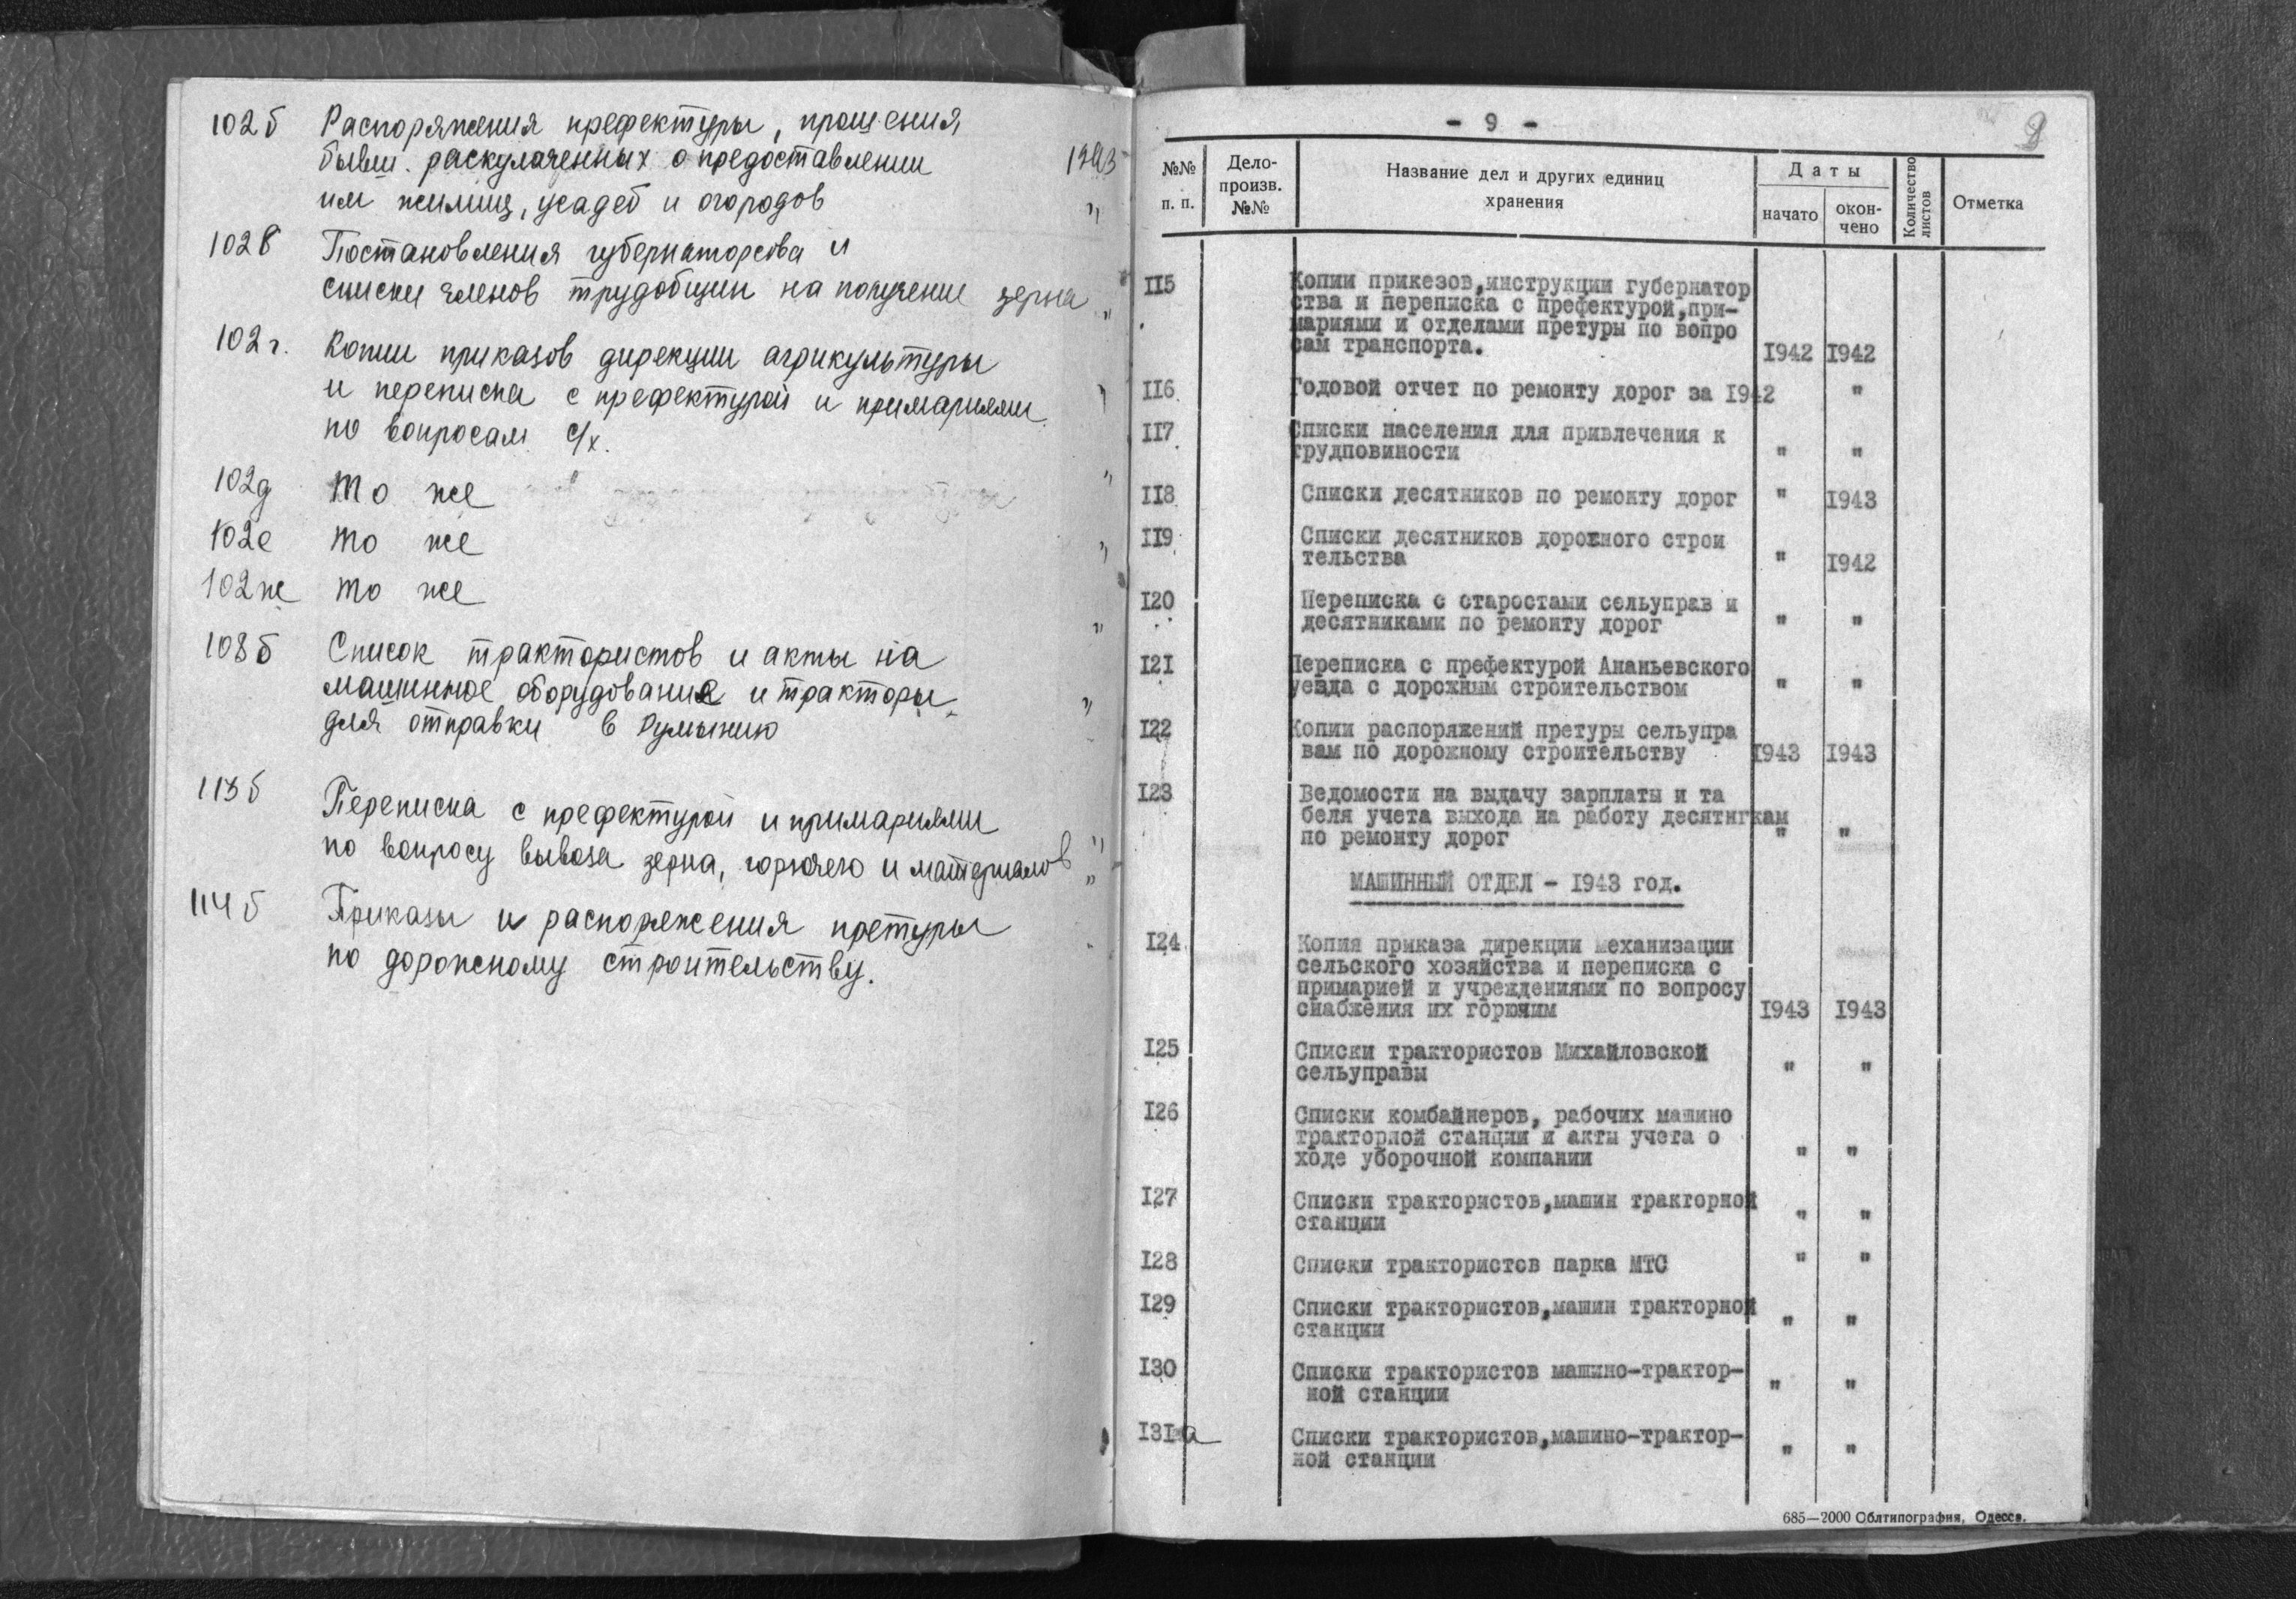 102б Распоряжения префектуры, прошения
бывш. раскулаченных о предоставлении 1943
им жилищ, усадеб и огородов "
102в Постановления губернаторства и
списки членов трудобщин на получение зерна "
102г. Копии приказов дирекции агрикультуры
и переписка с префектурой и примариями "
по вопросам с/х.
102д То же "
102е то же "
102ж то же "
108б Список трактористов и акты на
машинное оборудование и тракторы "
для отправки в Румынию
113б Переписка с префектурой и примариями
по вопросу вывоза зерна, горючего и материалов "
114б Приказы и распоряжения претуры "
по дорожному строительству.
- 9 -
9
№№ п. п.
Дело-произв. №№
Название дел и других единиц хранения
Даты
начато
окон-чено
Количество листов
Отметка
115 Копии прикезов,инструкции губернатор
ства и переписка с префектурой,при-
мариями и отделами претуры по вопро
сам транспорта. 1942 1942
116 Годовой отчет по ремонту дорог за 1942 "
117 Списки населения для привлечения к
трудповиности " "
118 Списки десятников по ремонту дорог " 1943
119 Списки десятников дорожного строи
тельства " 1942
120 Переписка с старостами сельуправ и
десятниками по ремонту дорог " "
121 Переписка с префектурой Ананьевского
уезда с дорожным строительством " "
122 Копии распоряжений претуры сельупра
вам по дорожному строительству 1943 1943
123 Ведомости на выдачу зарплаты и та
беля учета выхода на работу десятнгкам
по ремонту дорог " "
МАШИННЫЙ ОТДЕЛ - 1943 год.
124 Копия приказа дирекции механизации
сельского хозяйства и переписка с
примарией и учреждениями по вопросу
снабжения их горючим 1943 1943
125 Списки трактористов Михайловской
сельуправы " "
126 Списки комбайнеров, рабочих машино
тракторной станции и акты учета о
ходе уборочной компании " "
127 Списки трактористов,машин тракторной
станции " "
128 Списки трактористов парка МТС " "
129 Списки трактористов,машин тракторной
станции " "
130 Списки трактористов машино-трактор-
ной станции " "
131а Списки трактористов,машино-трактор-
ной станции " "
685—2000 Облтипография, Одесса.